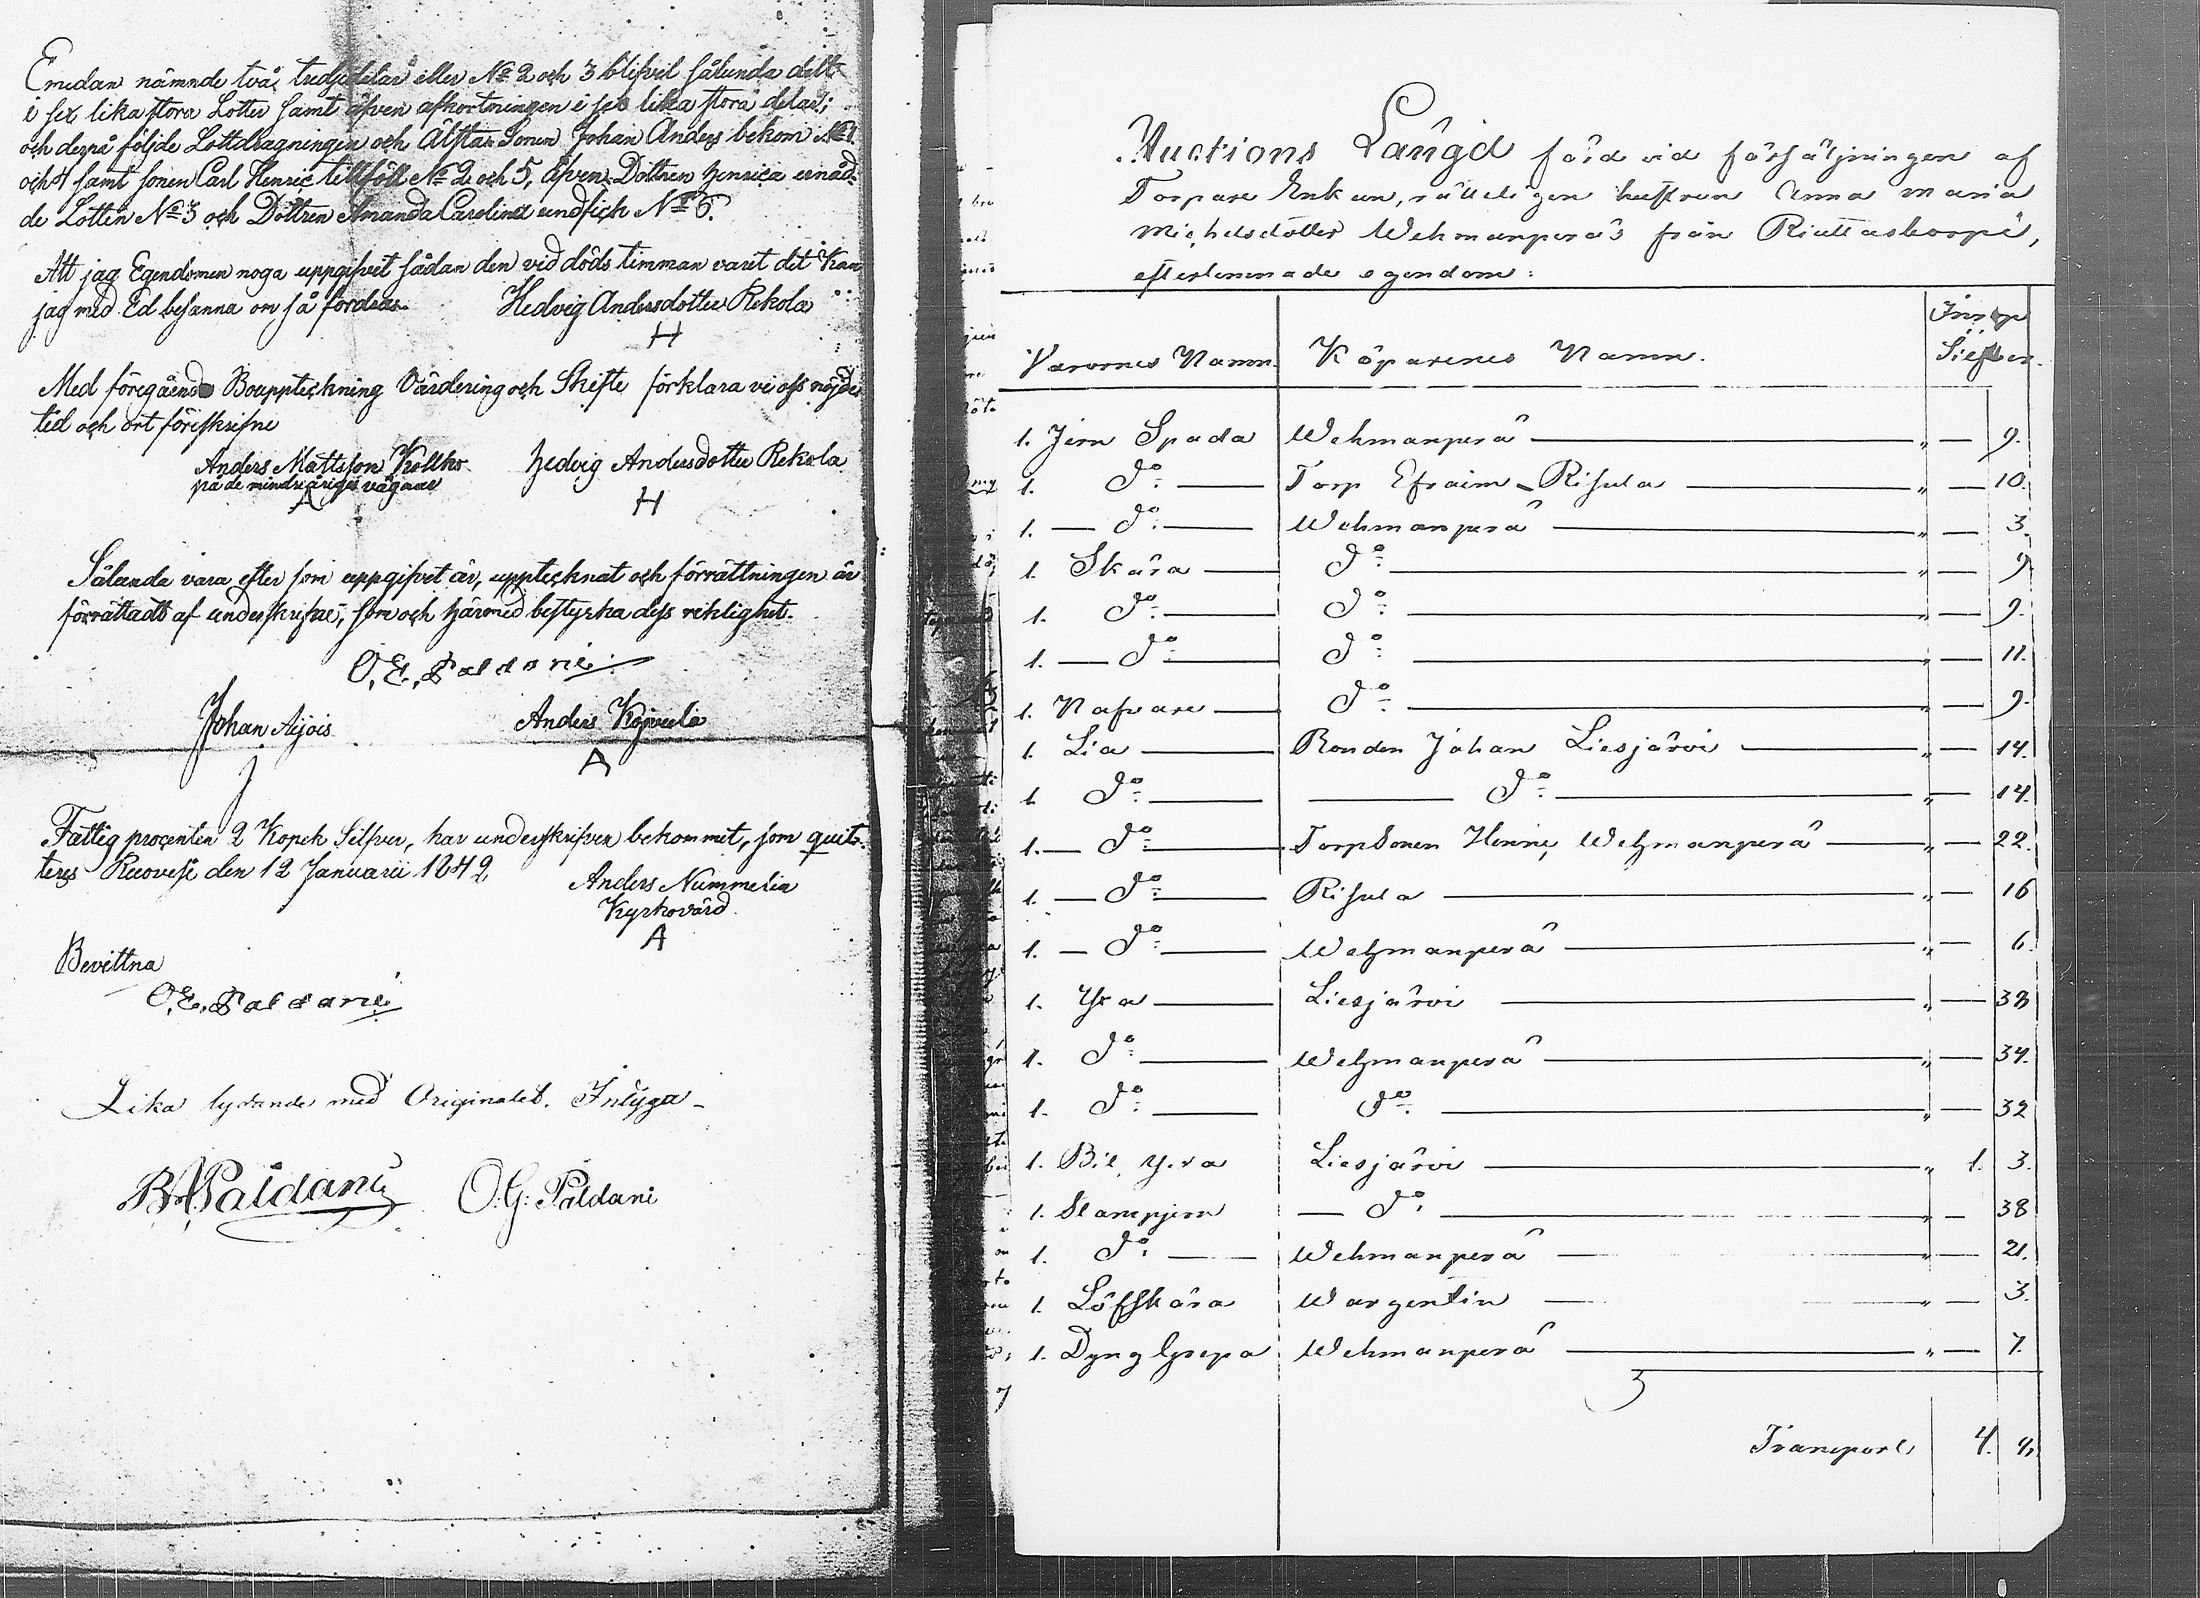 Emedan nämnde två tredjedelar eller No 2 och 3 blifvit sålunda delt
i sex lika stora Lotter samt äfven afkortningen i sex lika stora delar;
och derpå följde Lottdragningen och Älsta Sonen Johan Anders bekom No 1
och 4 samt sonen Carl Henric tillföll No 2 och 5, äfven Dottren Henrica ernåd-
de Lotten No 3 och Dottren Amanda Carolina undfick No 6.
Att jag Egendomen noga uppgifvit sådan den vid dödstimman varit det Kan
jag med Ed besanna om så fordras. Hedvig Andersdotter Rekola
H
Med föregående Bouppteckning Värdering och Skifte förklara vi oss nöjde
tid och ort föreskrifne
Anders Mattsson Kollko Hedvig Andersdotter Rekola
på de minderåriges vägnar H
A
Sålunda vara efter som uppgifvet är, upptecknat och förrättningen är
förrättadt af underskrifne, som och härmed bestyrka dess riktighet.
O. E. Paldani
Johan Äijöis Anders
J A
Fattig procenten 2 Kopek Silfver, har underskrifven bekommit, som quit-
teres den 12 Januarii 1842
Anders Nummelin
Kyrkovärd
A
Bevittna
O. E. Paldani
Lika lydande med Originalet. Intyga
Paldani O. G. Paldani
Auctions Längd förd vid försäljningen af
Torpare Enkan, rätteligen hustrun Anna Maria
Michelsdotter Wehmanperäs från Riuttaskorpi,
efterlemnade egendom:
Varornes Namn. Köparenes Namn. Inrop Silfver.
1. Jern Spada Wehmanperä " — 9.
1. Do: Torp Efraim Risula " — 10.
1. — Do: Wehmanperä " — 3.
1. Skära Do: " — 9
1. Do: Do: " — 9.
1. — Do: Do: " — 11.
1. Nafvare Do: " — 9.
1. Lia Bonden Johan Liesjärvi " — 14.
1. Do: Do: " — 14.
1. — Do: Torp Sonen Henric Wehmanperä " — 22.
1. — Do: Risula " — 16
1. — Do: Wehmanperä " — 6.
1. Yxa Liesjärvi " — 38
1. Do: Wehmanperä " — 34.
1. Do: Do: " — 32
1. Bil yxa Liesjärvi " 1. 3.
1. Stampjern — Do: " — 38
1. Do: Wehmanperä " — 21.
1. Löfskära Wargentin " — 3.
1. Dyng Grepa Wehmanperä " — 7.
Transport 4.